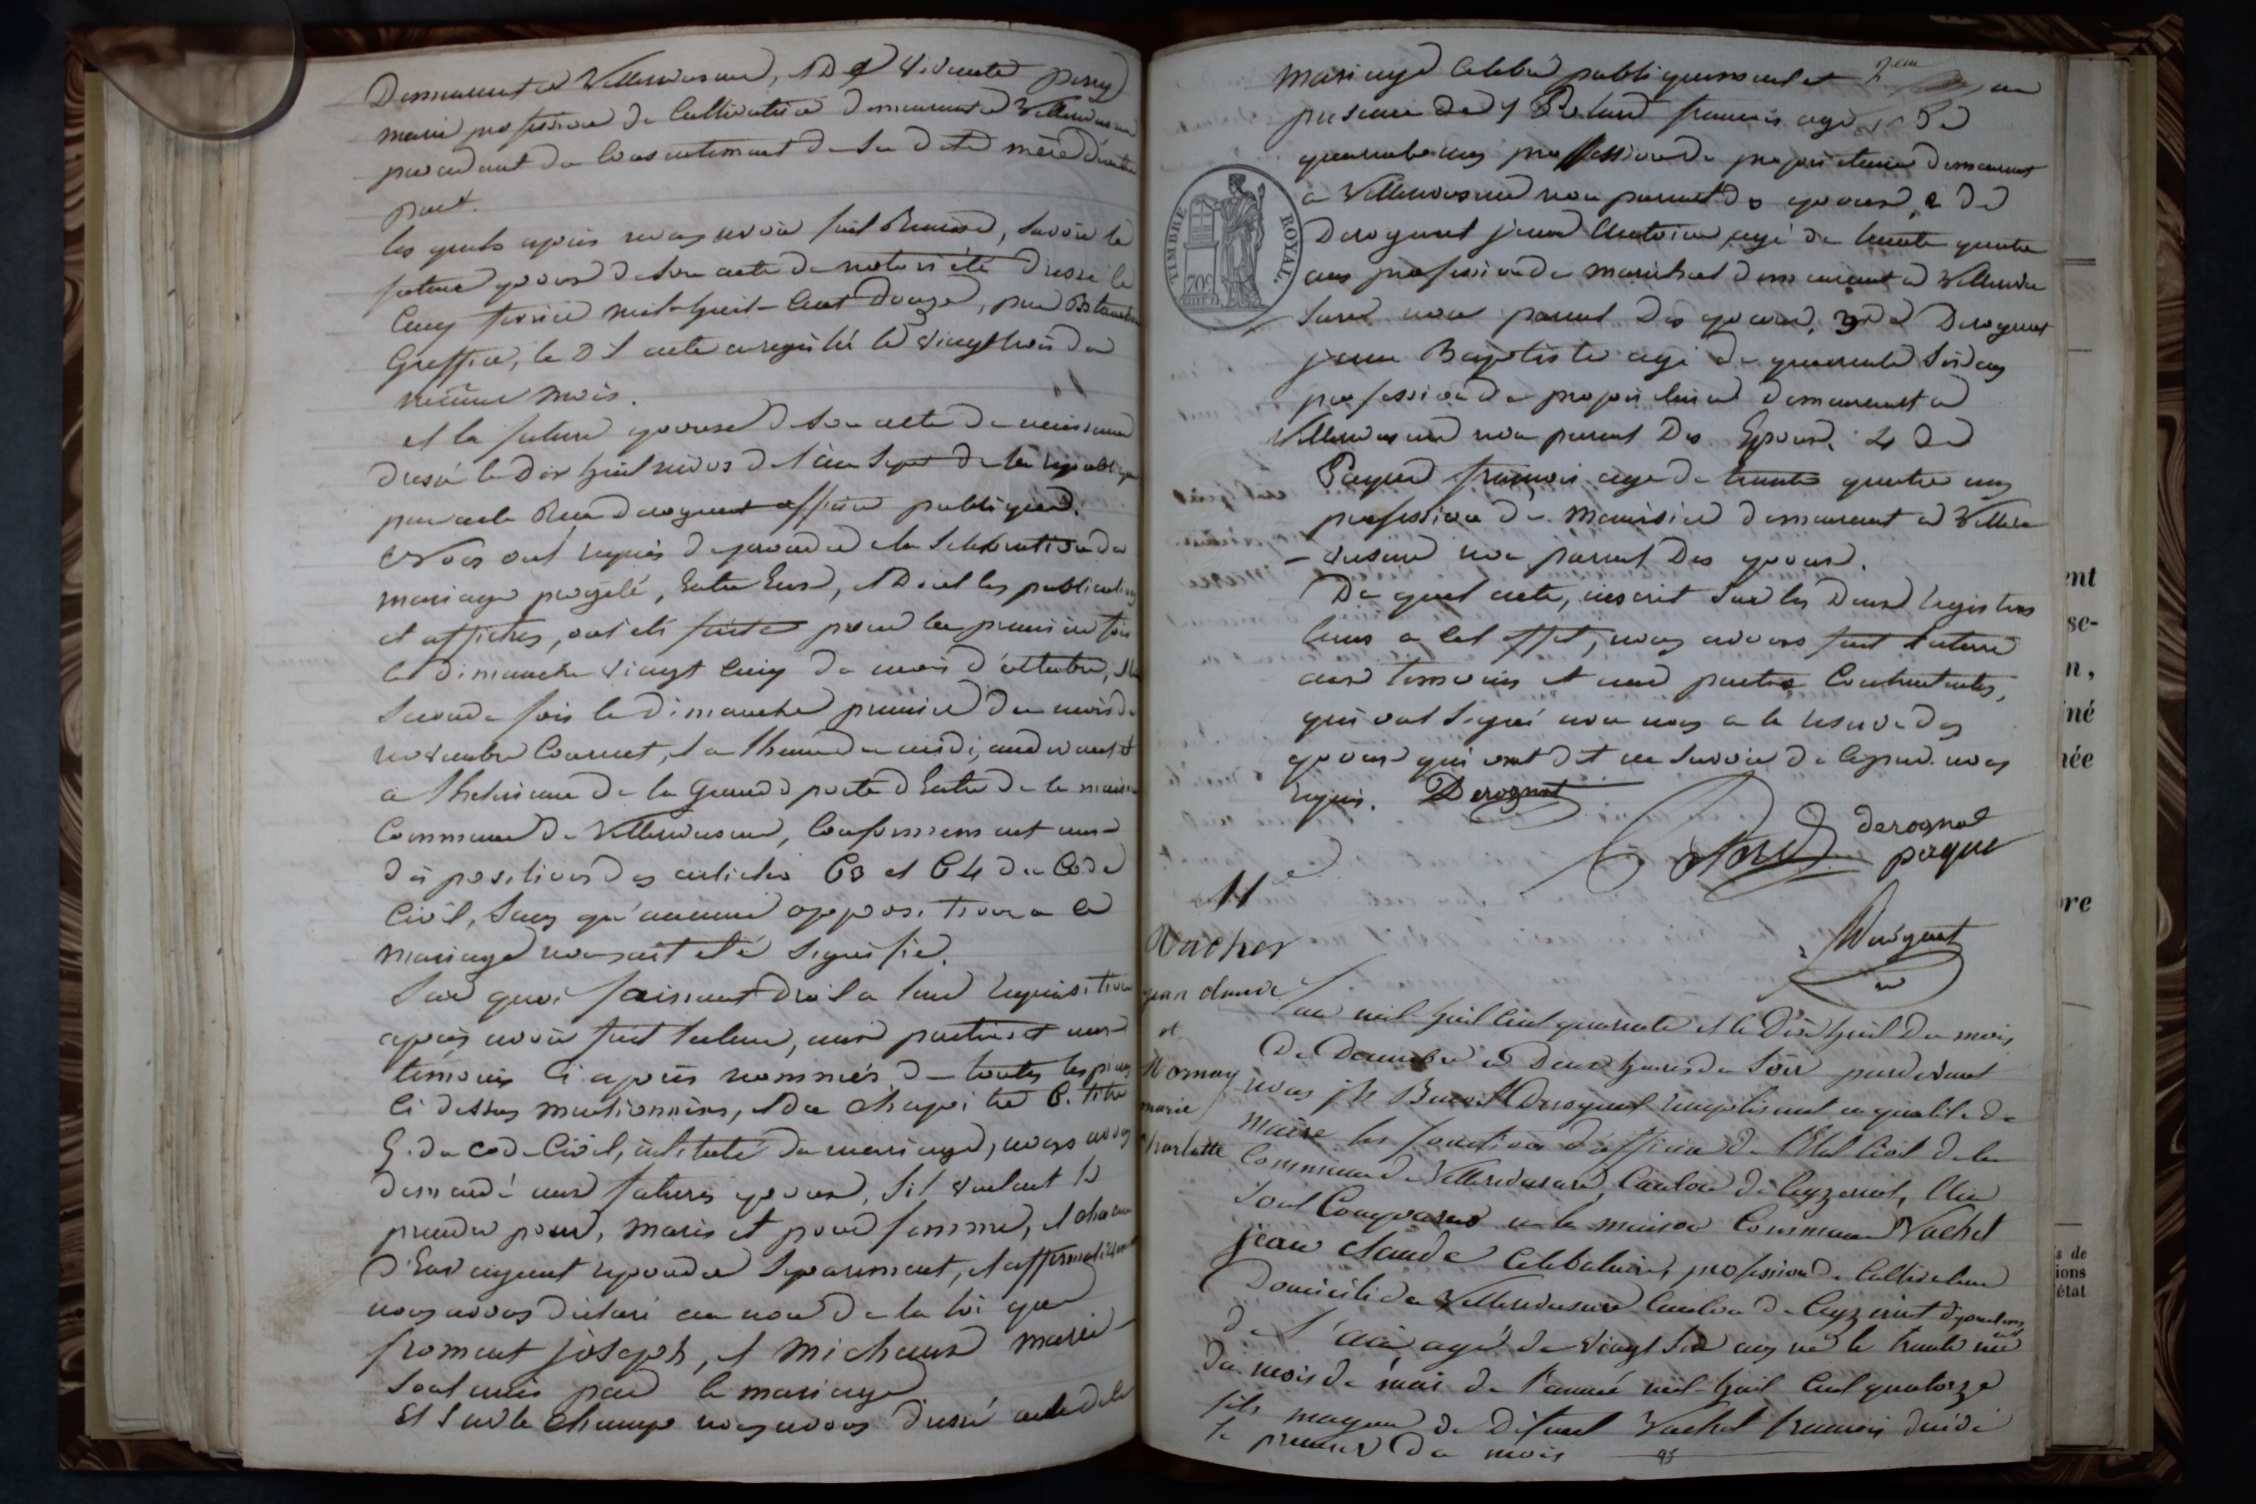 Demeurant a Villereversure, et De vivante perrey
marie profession de Cultivatrice demeurant a Villereversure
procedant du Consentement de Sa dite mère d'autre
part.
les quels après nous avoir fait Remise, Savoir le
futur epoux de Son acte de notoriété Dressé le
Cinq fevrier mil-huit-Cent Douze, par
Greffier, le D t acte enregistré le vingt trois du
même mois.
et la future epouse de Son acte de naissance
dressé le Dix huit nivos de l'an Sept de la republique
par acte Reçu derognat officier publique.
Nous ont requis de proceder a la Celebration du
mariage projeté, Entre Eux, et Dont les publications
et affiches, ont été faites pour la premiere fois
le dimanche vingt Cinq du mois d'octobre, et la
Seconde fois le dimanche premier du mois de
novembre Courant, a l'heure de midi, au devant et
a l'exterieur de la Grande porte d'Entré de la maison
Commune de Villereversure, Conformement aux
dispositions des articles 63 et 64 du Code
Civil, Sans qu'aucune opposition a Ce
mariage nous ait été Signifié.
Sur quoi faisant Droit a leur requisition
après avoir fait lecture, aux parties et aux
témoins Ci après nommés de toutes les pièces
Ci dessus mentionnées, et du Chapitre 6. titre
5. du code Civil, intitulé du mariage, nous avons
demandé aux futurs epoux, S'il veulent Se
prendre pour, maris et pour femme, et chacun
d'Eux ayant repondu Separement, et affirmativement
nous avons déclaré au nom de la loi que
froment joseph, et michaux marie
Sont unis par le mariage
Et Sur le Champ nous avons dressé acte de la
mariage Celebré publiquement et en
presence de 1° Poland francois agé de
quarante ans proffession de proprietaire demeurant
a Villereversure non parent des epoux, 2 de
Derognat jean Antoine, agé de trente quatre
ans profession de marechal demeurant a Villerever
Sure non parent des epoux, 3 de Derognat
jean Baptiste agé de quarante Six ans
profession de proprietaire demeurant a
Villereversure non parent Des Epoux. 4 de
Paque francois age de trente quatre ans
profession de menuisier demeurant a Villere
- versure non parent Des epoux.
De quel acte, inscrit Sur les Deux registres
tenus a Cet effet, nous avons fait lecture
aux temoins et aux parties Contractantes,
qui ont Signé avec nous a la reserve des
epoux qui ont dit ne Savoir de Ce par nous
requis. Derognat
derognat
paque
Derognat
TIMBRE ROYAL.
70c
11e
Vacher
jean claude
et
Romay
marie
charlotte
l'an mil-huit Cent quarante et le Dix huit Du mois
De Decembre a Deux heures du Soir pardevant
nous Benoit Derognat remplissant en qualité de
Maire les fonctions d'officier de l'Etat Civil de la
Commune de Villereversure, Canton de Ceyzeriat, l'Ain
Sont Comparus en la maison Commune Vachet
jean claude Celebataire, profession de Cultivateur
Domicilié de Villereversure Canton de Ceyzeriat departement
de l'ain agé de vingt Six ans né le trente un
du mois de mai de l'année mil-huit Cent quatorze
fils majeur de défunt Vachet francois décédé
le premier du mois